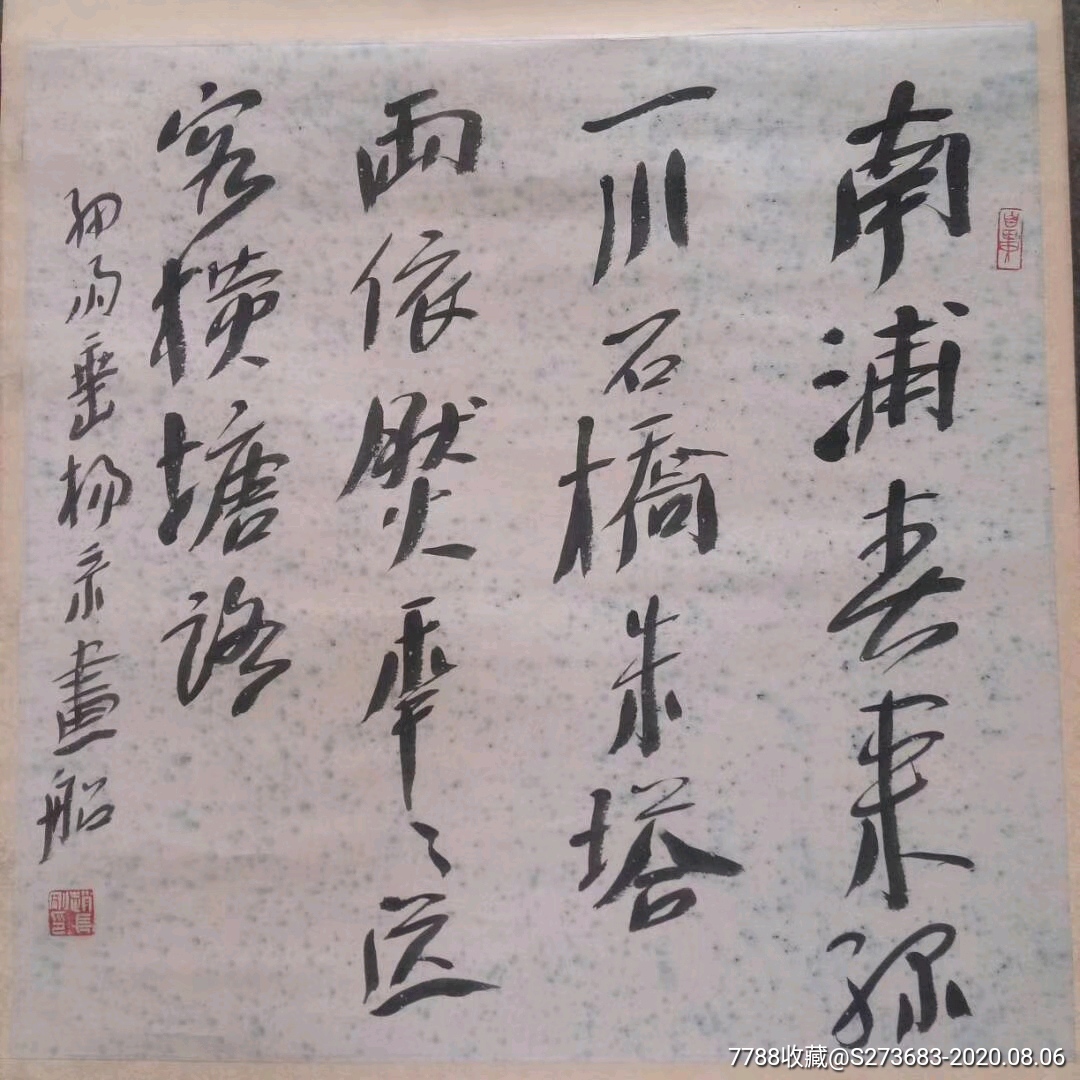 南浦春来绿
一川石橋朱塔
两依然年々送
客橫塘路
细雨垂杨系畫船
7788收藏@S273683-2020.08.06